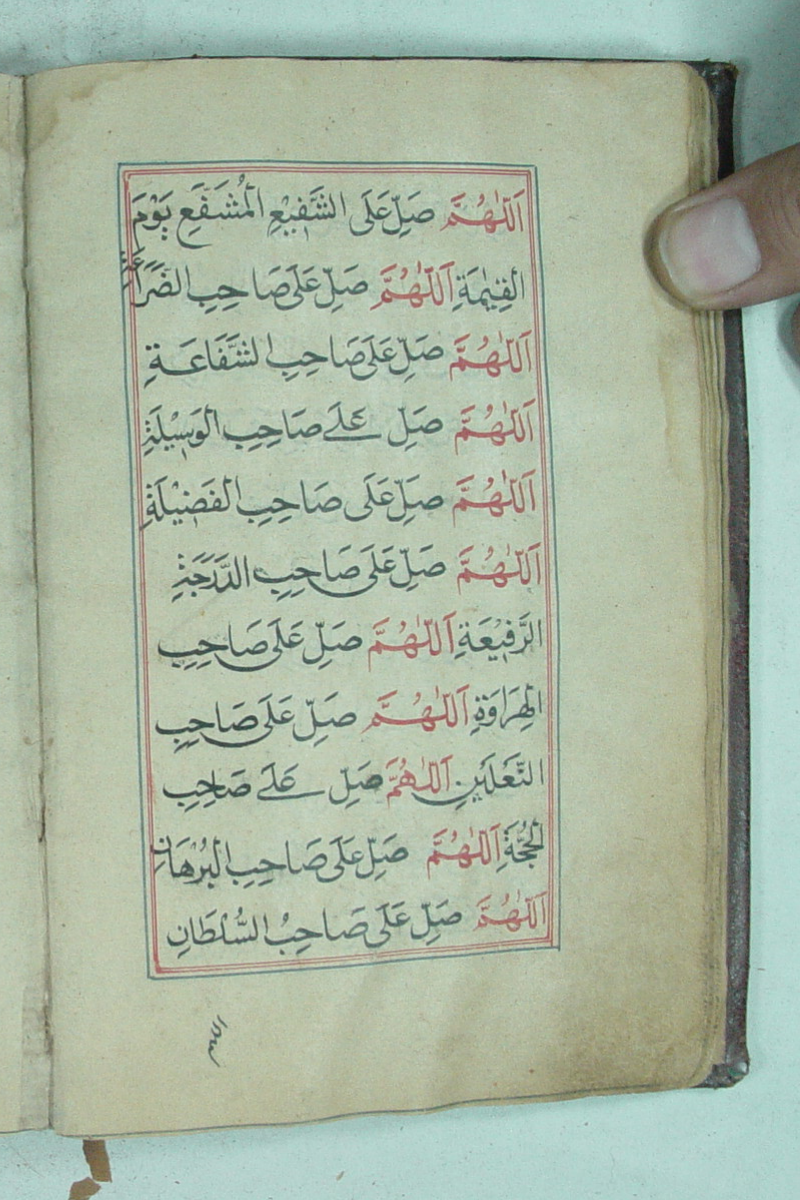 اَللّٰهُمَّ صَلِّ عَلَى الشَّفِيْعِ الْمُشَفَّعِ يَوْمَ
الْقِيٰمَةِ اَللّٰهُمَّ صَلِّ عَلَى صَاحِبِ الضَّرَاعَةِ
اَللّٰهُمَّ صَلِّ عَلَى صَاحِبِ الشَّفَاعَةِ
اَللّٰهُمَّ صَلِّ عَلَے صَاحِبِ الْوَسِيْلَةِ
اَللّٰهُمَّ صَلِّ عَلَى صَاحِبِ الْفَضِيْلَةِ
اَللّٰهُمَّ صَلِّ عَلَى صَاحِبِ الدَّرَجَةِ
الرَّفِيْعَةِ اَللّٰهُمَّ صَلِّ عَلَى صَاحِبِ
الْهِرَاوَةِ اَللّٰهُمَّ صَلِّ عَلَى صَاحِبِ
النَّعْلَيْنِ اَللّٰهُمَّ صَلِّ عَلَے صَاحِبِ
الْحُجَّةِ اَللّٰهُمَّ صَلِّ عَلَى صَاحِبِ الْبُرْهَانِ
اَللّٰهُمَّ صَلِّ عَلَى صَاحِبُ السُّلْطَانِ